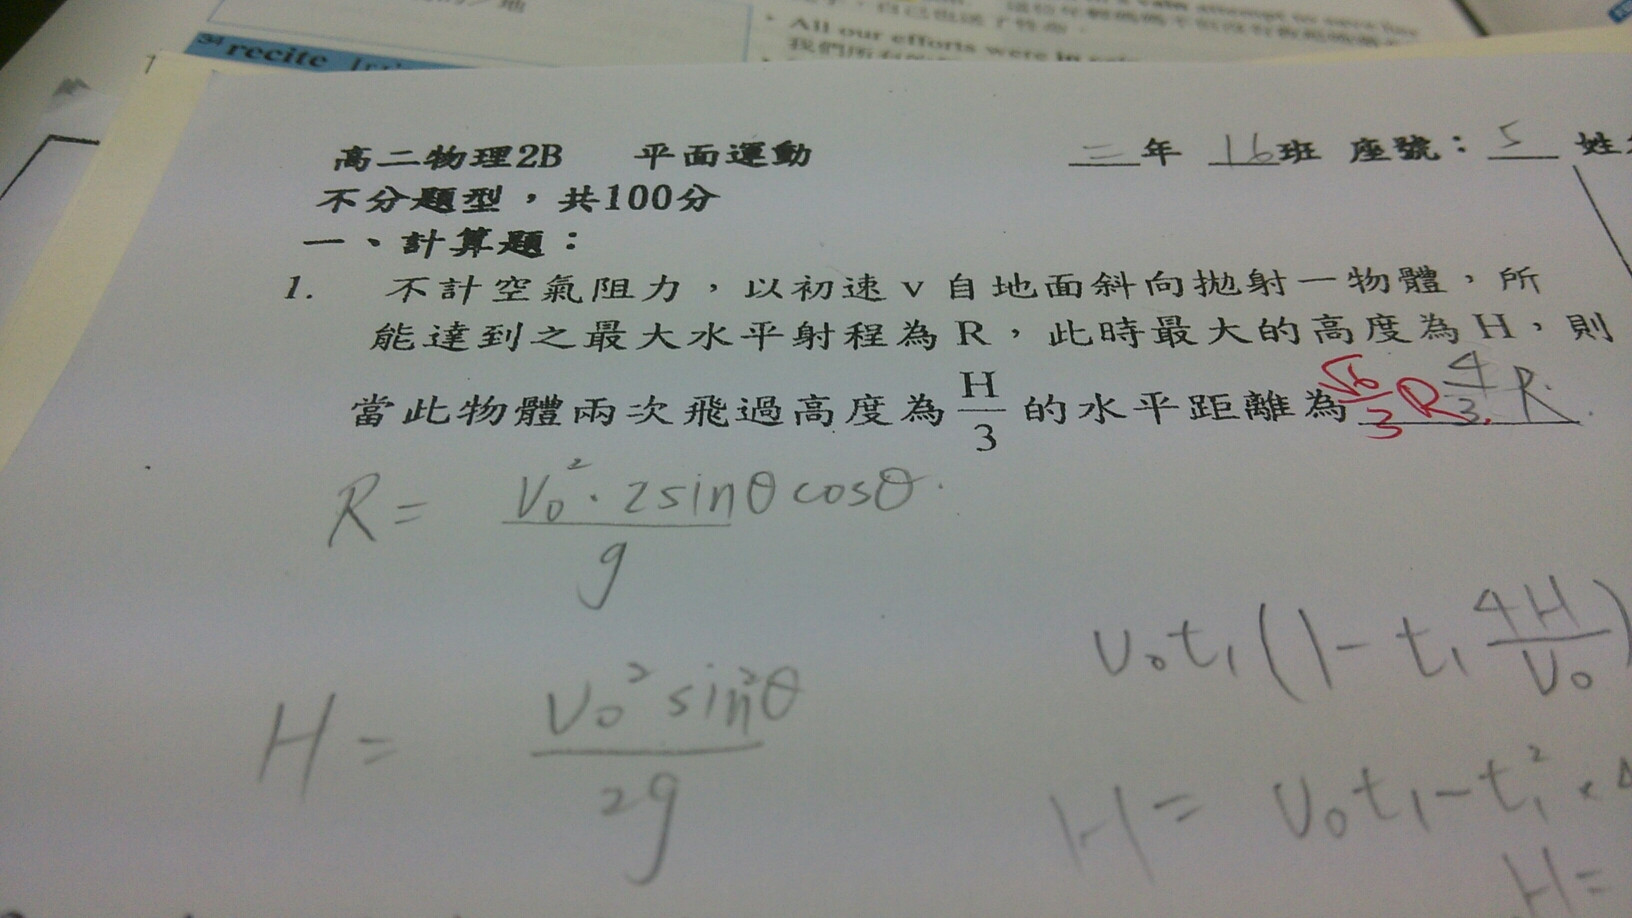 34 recite
All our efforts were in
高二物理2B 平面運動 二年 16班 座號：5 姓
不分題型，共100分
一、計算題：
1. 不計空氣阻力，以初速 v 自地面斜向拋射一物體，所
能達到之最大水平射程為 R，此時最大的高度為 H，則
當此物體兩次飛過高度為 H/3 的水平距離為 √6/3 R 4/3 R.
R = V₀²·2sinθcosθ. / g
V₀t₁(1-t₁ 4H/V₀)
H = V₀²sin²θ / 2g
H = V₀t₁-t₁²×4
H=